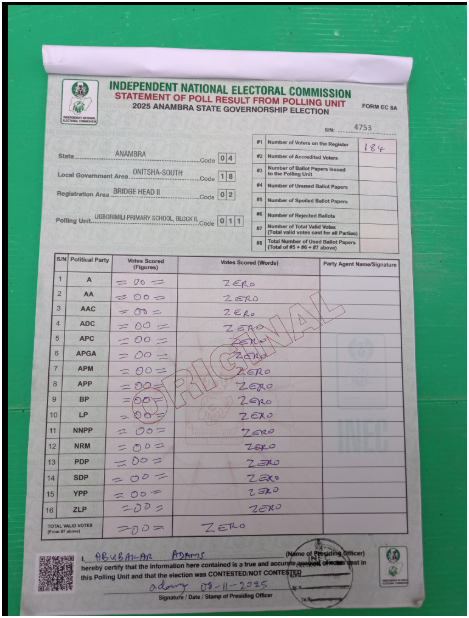 INDEPENDENT NATIONAL ELECTORAL COMMISSION
STATEMENT OF POLL RESULT FROM POLLING UNIT
2025 ANAMBRA STATE GOVERNORSHIP ELECTION
FORM EC 8A
INDEPENDENT NATIONAL ELECTORAL COMMISSION
S/N: 4753
State ANAMBRA Code 0 4
Local Government Area ONITSHA-SOUTH Code 1 8
Registration Area BRIDGE HEAD II Code 0 2
Polling Unit UGBORIMILI PRIMARY SCHOOL, BLOCK II, Code 0 1 1
#1 Number of Voters on the Register 184
#2 Number of Accredited Voters
#3 Number of Ballot Papers Issued to the Polling Unit
#4 Number of Unused Ballot Papers
#5 Number of Spoiled Ballot Papers
#6 Number of Rejected Ballots
#7 Number of Total Valid Votes (Total valid votes cast for all Parties)
#8 Total Number of Used Ballot Papers (Total of #5 + #6 + #7 above)
S/N Political Party Votes Scored (Figures) Votes Scored (Words) Party Agent Name/Signature
1 A =00= ZERO
2 AA =00= ZERO
3 AAC =00= ZERO
4 ADC =00= ZERO
5 APC =00= ZERO
6 APGA =00= ZERO
7 APM =00= ZERO
8 APP =00= ZERO
9 BP =00= ZERO
10 LP =00= ZERO
11 NNPP =00= ZERO
12 NRM =00= ZERO
13 PDP =00= ZERO
14 SDP =00= ZERO
15 YPP =00= ZERO
16 ZLP =00= ZERO
TOTAL VALID VOTES (From #7 above) =00= ZERO
ORIGINAL
INEC
I, ABUBAKAR ADAMS (Name of Presiding Officer)
hereby certify that the information here contained is a true and accurate cast in
this Polling Unit and that the election was CONTESTED/NOT CONTESTED
08-11-2025
Signature / Date / Stamp of Presiding Officer